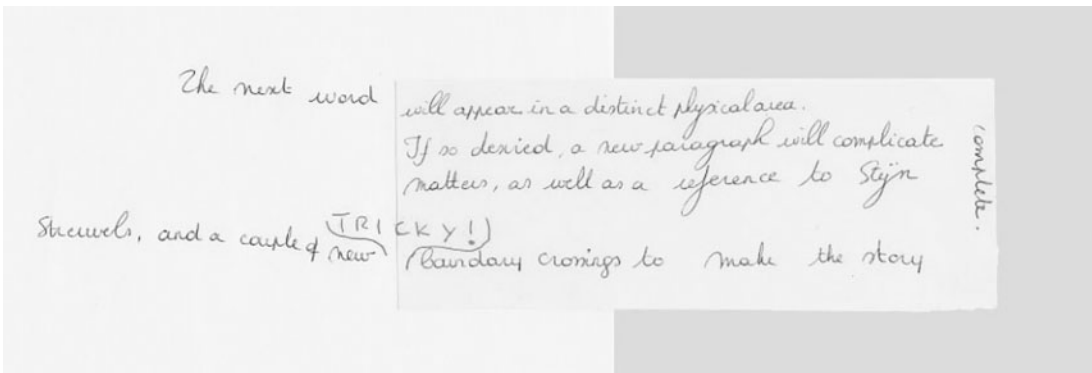 The next word will appear in a distinct physical area.
If so denied, a new paragraph will complicate
matters, as well as a reference to Stijn
Streuvels, and a couple of new
TRICKY!
boundary crossings to make the story
complete.